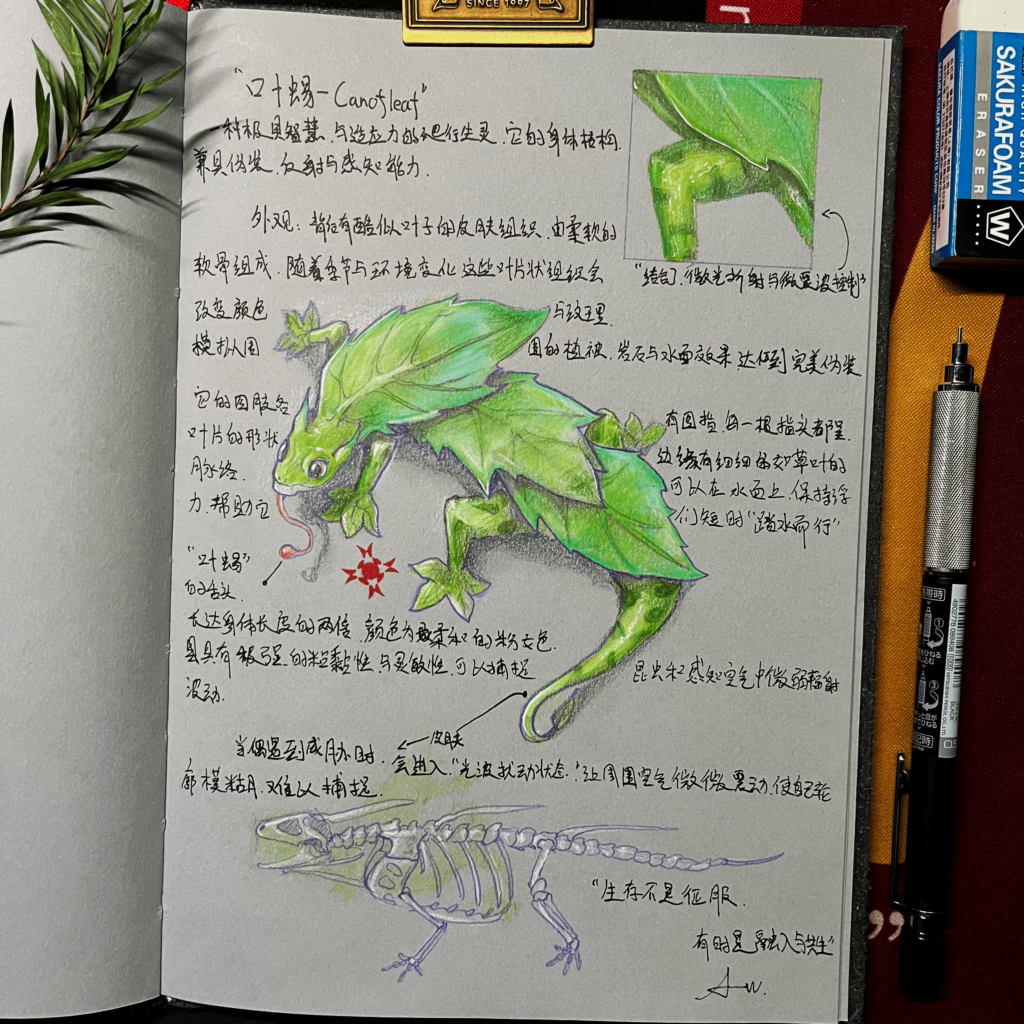 SINCE 1997
"叶蜴-Canofleaf"
一种极具智慧、与适应力的爬行生灵、它的身体结构,
兼具伪装、反射与感知能力.
外观: 背后有酷似叶子的皮肤组织、由柔软的
软骨组成、随着季节与环境变化这些叶片状组织会
改变颜色 与这里
模拟周围的植被、岩石与水面效果达到完美伪装
"结合了微光折射与微震波控制"
它的四肢各有四指、每一根指头都呈
叶片的形状 边缘有细细的如草叶的
脉络. 可以在水面上、保持浮
力、帮助它们短时"踏水而行"
"叶蜴"
的舌头
长达身体长度的两倍、颜色为柔和的粉红色.
具有极强的粘性与灵敏性、可以捕捉昆虫和感知空气中微弱辐射
波动.
皮肤
当偶遇到威胁时、会进入"光波扰动状态":让周围空气微微震动、使自己轮
廓模糊、难以捕捉.
"生存不是征服、
有时是融入与共生"
SAKURAFOAM
ERASER
W